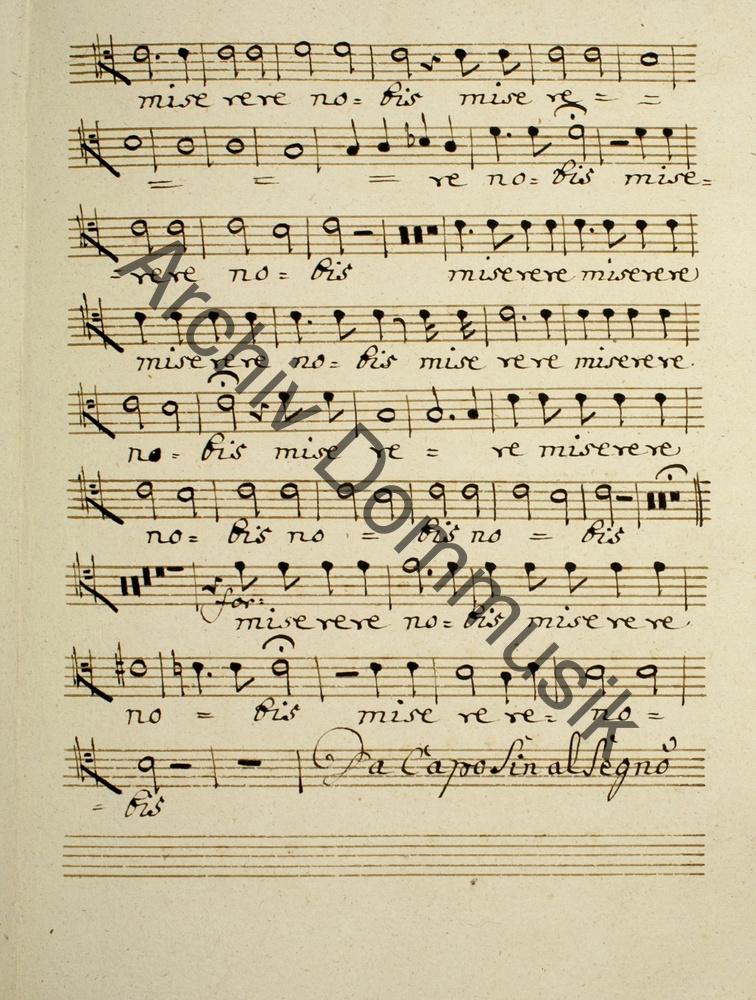 mise rere no= bis mise re = =
= = = re no= bis mise=
= rere no = bis miserere miserere
mise rere no= bis mise rere miserere.
no= bis mise re = re miserere
no= bis no = bis no = bis
for:
miserere no= bis miserere.
no = bis mise re re= no =
= bis Da Capo Sin al Segno
Archiv Dommusik